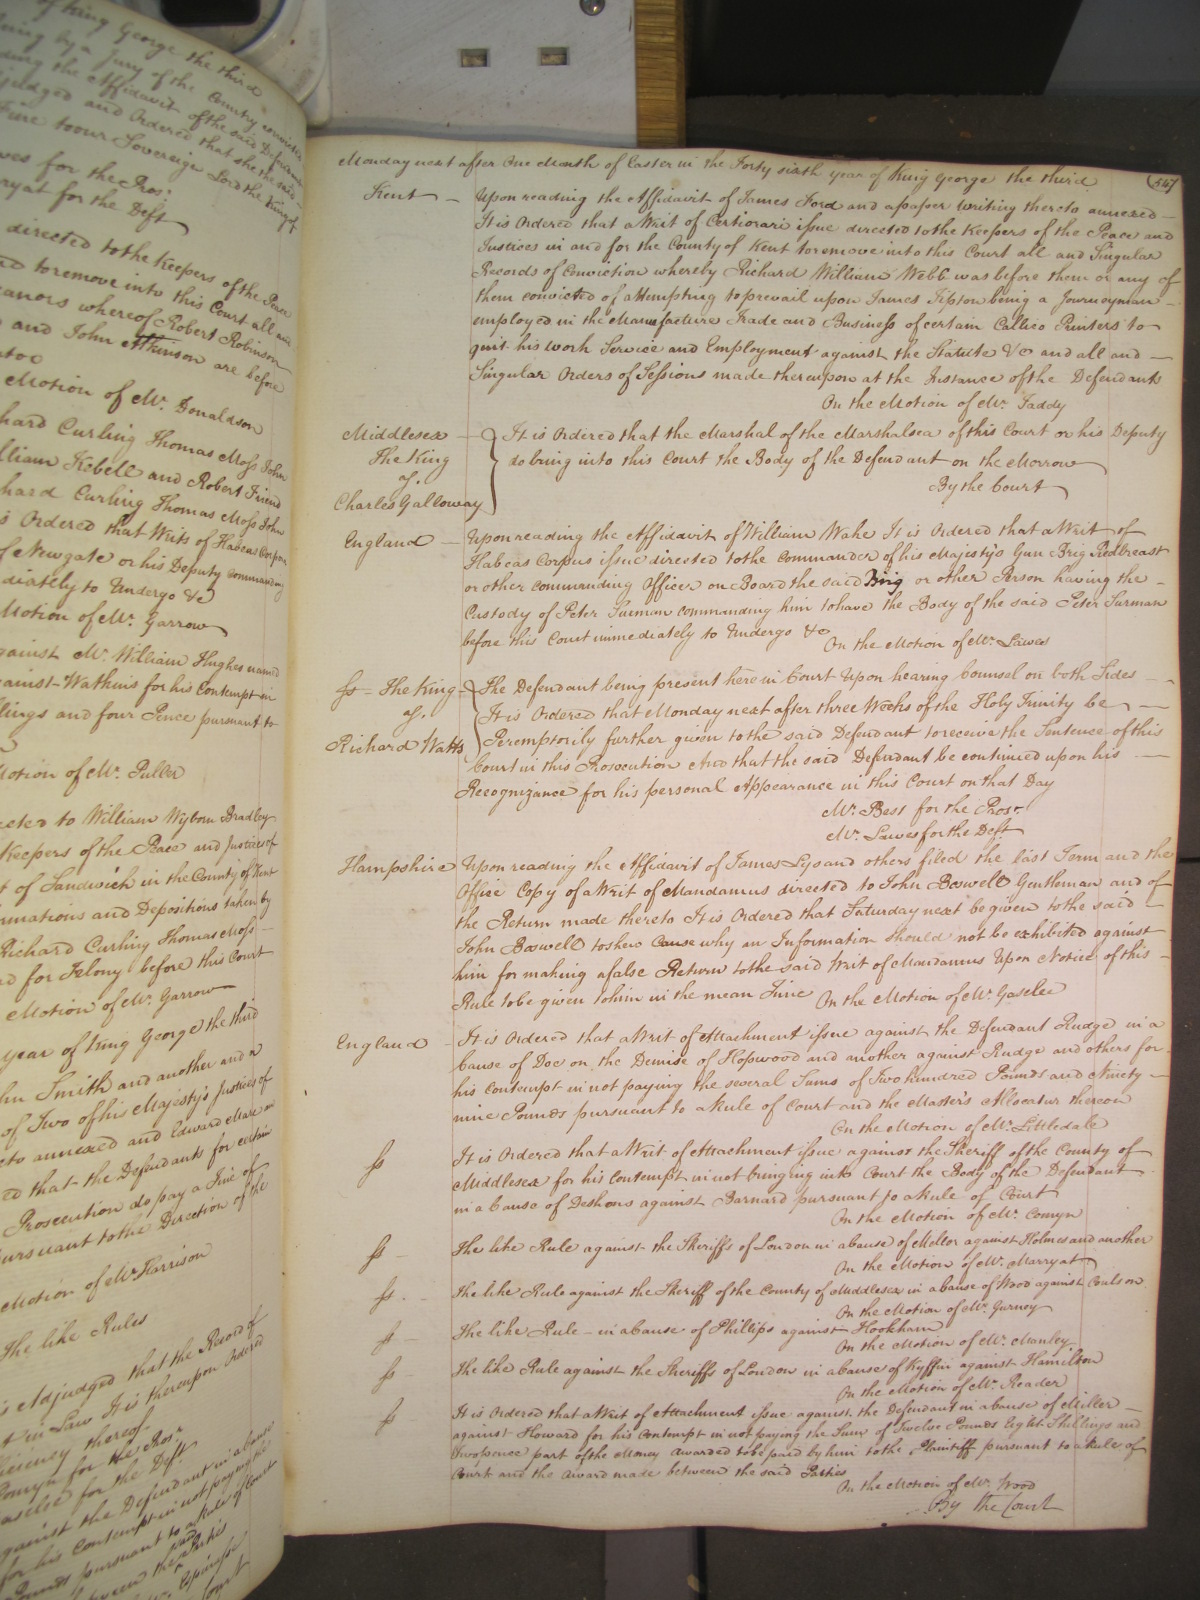 of King George the third
by a Jury of the County
the Affidavit of the said
judged and Ordered that she the said
Fine to our Sovereign Lord the King of
for the Pros.r
for the Deft
directed to the Keepers of the Peace
and to remove into this Court all and
whereof Robert Robinson
and John Atkinson are before
Motion of Mr. Donaldson
Richard Curling Thomas Moss John
William Kebell and Robert Friend
Richard Curling Thomas Moss John
is Ordered that Writs of Habeas Corpus
of Newgate or his Deputy commanding
immediately to Undergo &c
Motion of Mr. Garrow
against Mr. William Hughes named
against Watkins for his Contempt in
Shillings and four Pence pursuant to
Motion of Mr. Puller
directed to William Wyborn Bradley
Keepers of the Peace and Justices of
of Sandwich in the County of Kent
Informations and Depositions taken by
Richard Curling Thomas Moss
for Felony before this Court
Motion of Mr. Garrow
year of King George the third
John Smith and another and a
of Two of his Majesty's Justices of
annexed and Edward
that the Defendants for certain
Prosecution do pay a Fine of
pursuant to the Direction of the
Motion of Mr. Harrison
The like Rules
is Adjudged that the Record of
in Law It is thereupon Ordered
thereof
Comyn for the Pros.r
for the Deft
against the Defendant in a Cause
for his Contempt in not paying the
Pounds pursuant to a Rule of Court
between the said Parties
Monday next after One Month of Easter in the Forty sixth year of King George the third
547
Kent – Upon reading the Affidavit of James Ford and a paper writing thereto annexed –
It is Ordered that a Writ of Certiorari issue directed to the Keepers of the Peace and
Justices in and for the County of Kent to remove into this Court all and Singular
Records of Conviction whereby Richard William Webb was before them or any of
them convicted of attempting to prevail upon James Tipton being a Journeyman –
employed in the Manufacture Trade and Business of certain Callico Printers to
quit his work Service and Employment against the Statute &c and all and –
Singular Orders of Sessions made thereupon at the Instance of the Defendants
On the Motion of Mr. Taddy
Middlesex – It is Ordered that the Marshal of the Marshalsea of this Court or his Deputy
The King do bring into this Court the Body of the Defendant on the Morrow
agt. By the Court
Charles Galloway
England – Upon reading the Affidavit of William Wake It is Ordered that a Writ of
Habeas Corpus issue directed to the Commander of his Majesty's Gun Brig Redbreast
or other commanding Officer on Board the said Brig or other Person having the –
Custody of Peter Surman commanding him to have the Body of the said Peter Surman
before this Court immediately to Undergo &c
On the Motion of Mr. Lawes
ss – The King – The Defendant being present here in Court Upon hearing Counsel on both Sides –
agt. It is Ordered that Monday next after three Weeks of the Holy Trinity be –
Richard Watts Peremptorily further given to the said Defendant to receive the Sentence of this
Court in this Prosecution And that the said Defendant be continued upon his –
Recognizance for his personal Appearance in this Court on that Day
Mr. Best for the Pros.r
Mr. Lawes for the Deft
Hampshire Upon reading the Affidavit of James Lys and others filed the last Term and the
Office Copy of a Writ of Mandamus directed to John Boswell Gentleman and of
the Return made thereto It is Ordered that Saturday next be given to the said –
John Boswell to shew Cause why an Information should not be exhibited against
him for making a false Return to the said Writ of Mandamus Upon Notice of this –
Rule to be given to him in the mean Time On the Motion of Mr. Gaselee
England – It is Ordered that a Writ of Attachment issue against the Defendant Rudge in a
Cause of Doe on the Demise of Hopwood and another against Rudge and others for
his Contempt in not paying the several Sums of Two hundred Pounds and Ninety –
nine Pounds pursuant to a Rule of Court and the Master's Allocatur thereon
On the Motion of Mr. Littledale
ss It is Ordered that a Writ of Attachment issue against the Sheriff of the County of
Middlesex for his Contempt in not bringing into Court the Body of the Defendant
in a Cause of Deshons against Barnard pursuant to a Rule of Court
On the Motion of Mr. Comyn
ss – The like Rule against the Sheriffs of London in a Cause of Mellor against Holmes and another
On the Motion of Mr. Marryat
ss. – The like Rule against the Sheriff of the County of Middlesex in a Cause of Wood against Coulson
On the Motion of Mr. Gurney
ss – The like Rule – in a Cause of Phillips against Hookham
On the Motion of Mr. Manley
ss – The like Rule against the Sheriffs of London in a Cause of Kyffin against Hamilton
On the Motion of Mr. Reader
ss It is Ordered that a Writ of Attachment issue against the Defendant in a Cause of Miller –
against Howard for his Contempt in not paying the Sum of Twelve Pounds Eight Shillings and
Twopence part of the Money awarded to be paid by him to the Plaintiff pursuant to a Rule of
Court and the Award made between the said Parties
On the Motion of Mr. Wood
By the Court